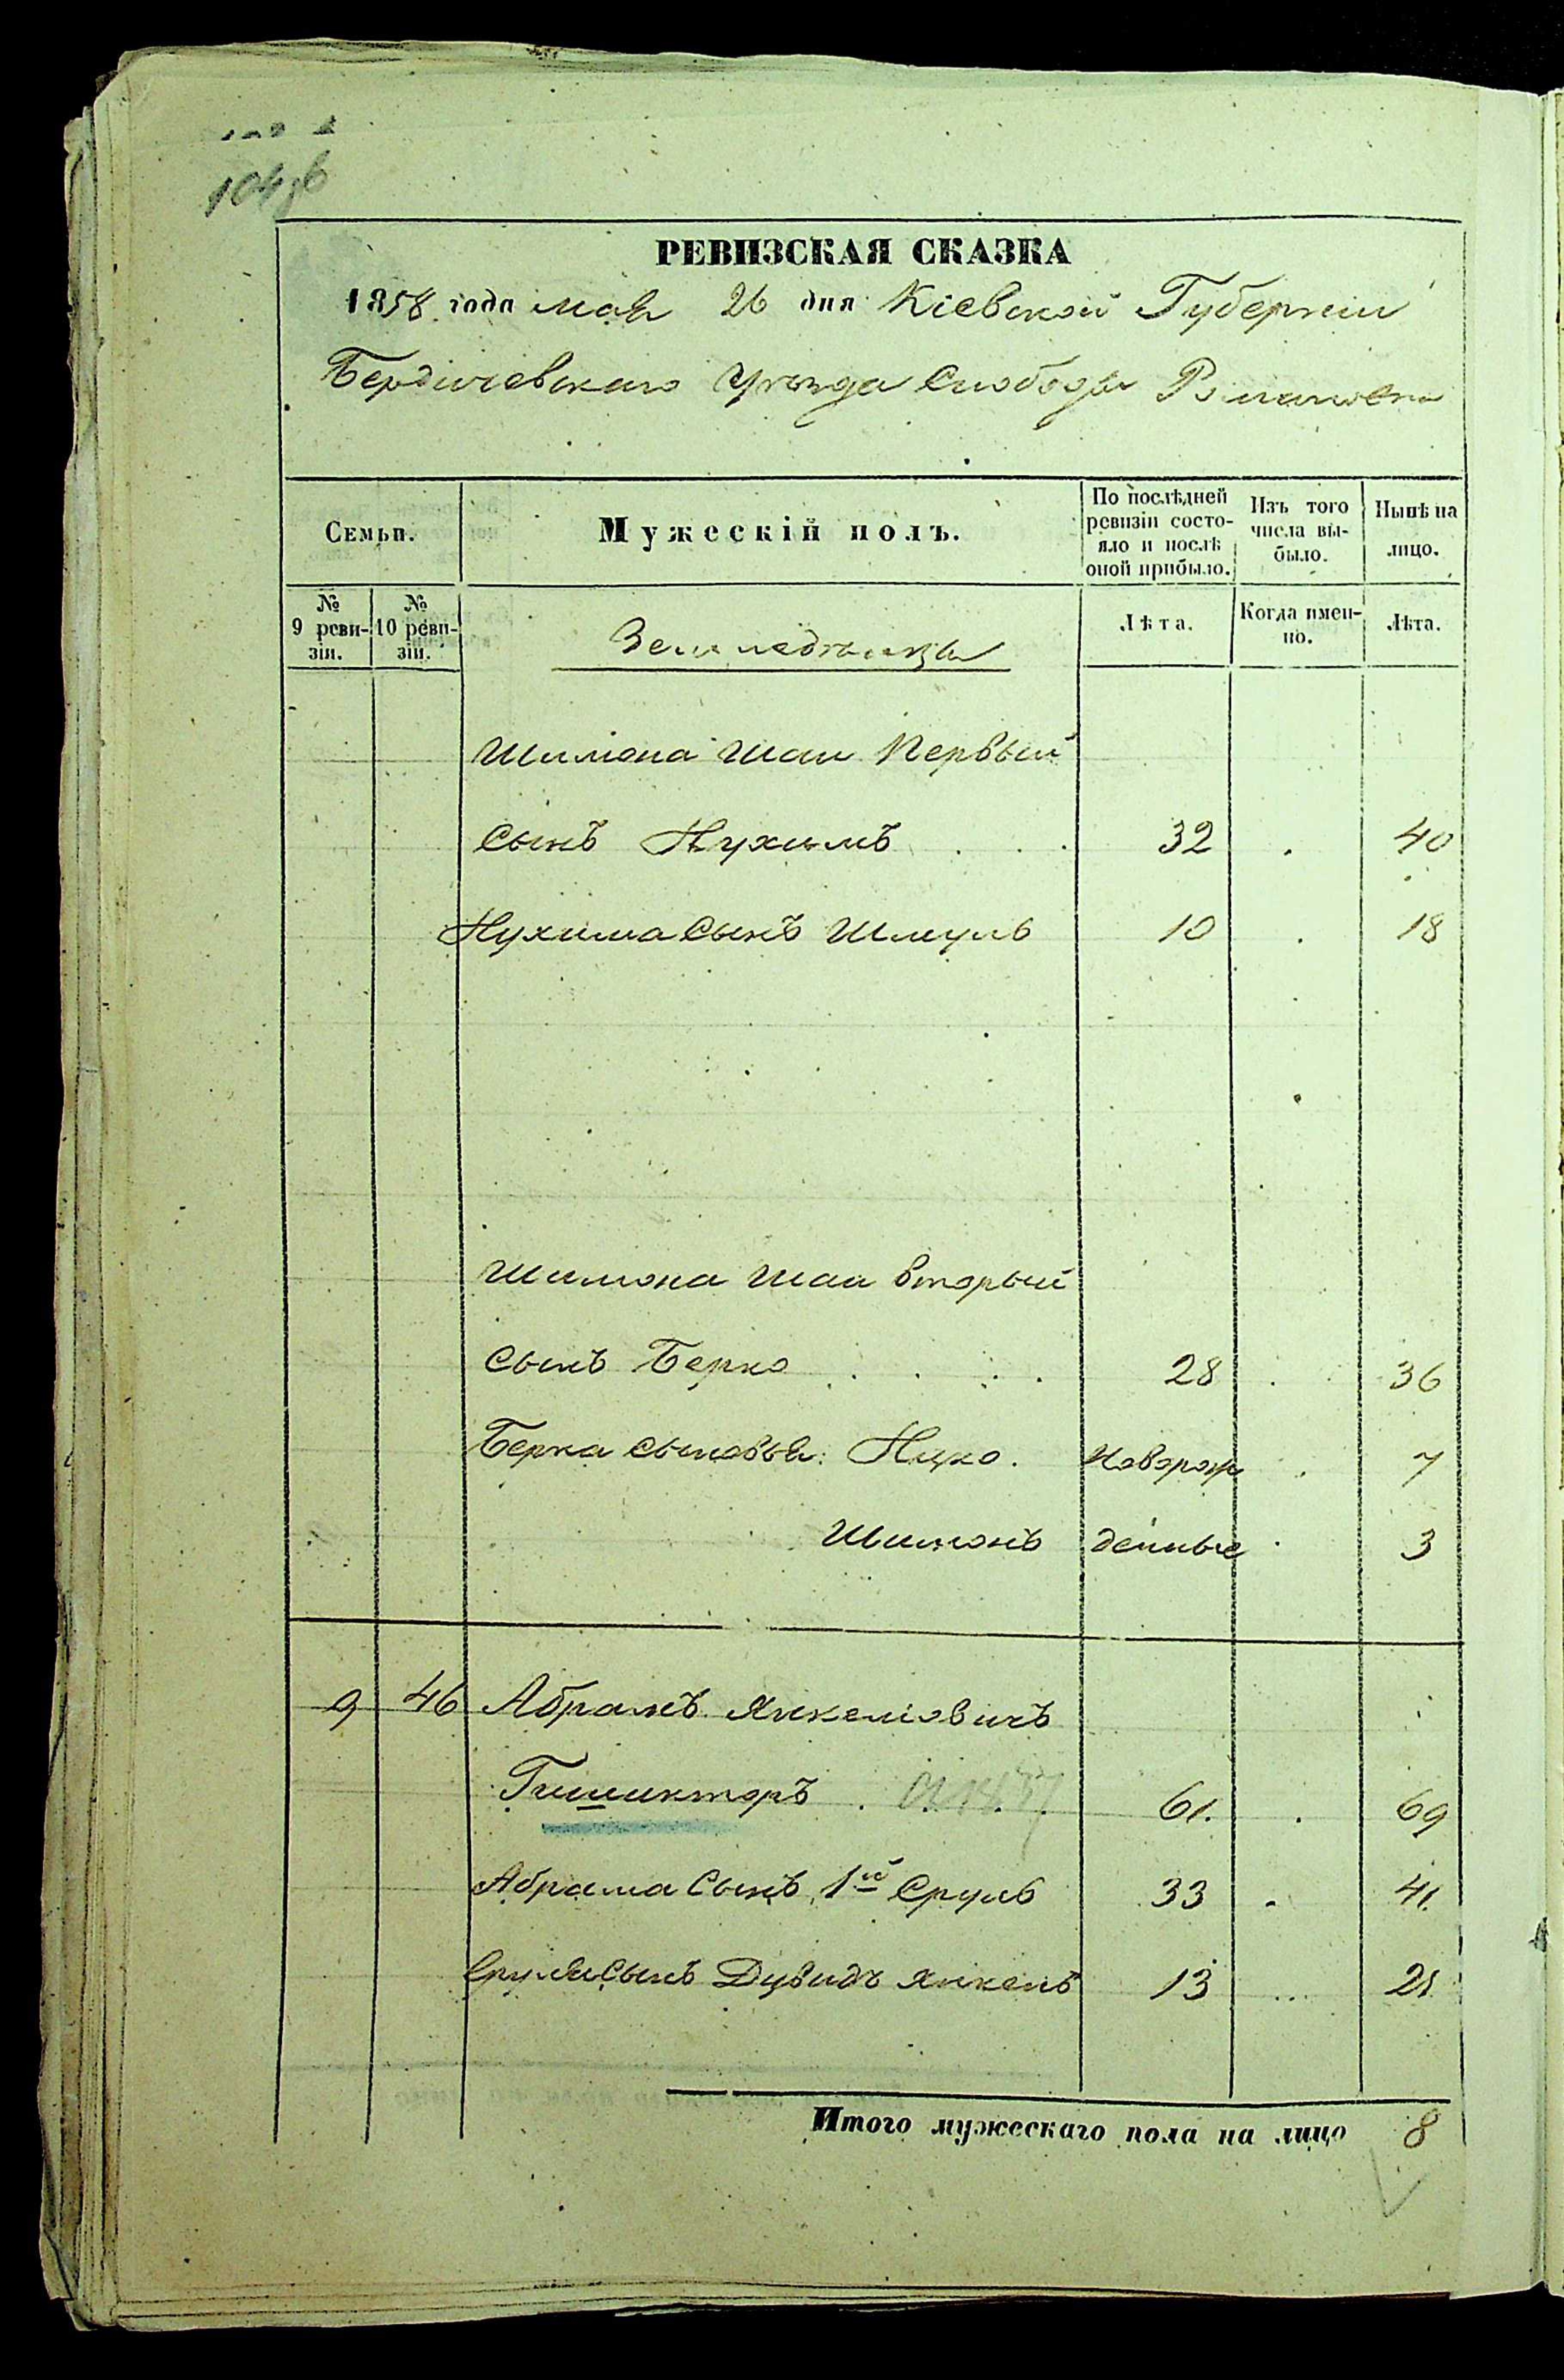 104об
РЕВИЗСКАЯ СКАЗКА
1858 года мая 26 дня Кіевской Губерніи
Бердичевскаго Уѣзда Слободы Романовки
Семьи. Мужескій полъ. По послѣдней ревизіи состояло и послѣ оной прибыло. Изъ того числа выбыло. Нынѣ на лицо.
№ 9 ревизіи. № 10 ревизіи. Земледѣльцы Лѣта. Когда именно. Лѣта.
Шимона Шаи Первый
сынъ Нухимъ 32 40
Нухима сынъ Шмуль 10 18
Шимона Шаи вторый
сынъ Берко 28 36
Берка сыновья: Ицко. новорож 7
Шимонъ денные 3
9 46 Абрамъ Янкеліовичъ
Гишикторъ 61. 69
Абрама Сынъ 1й Сруль 33 41.
Сруля Сынъ Дувидъ Янкель 13 21
Итого мужескаго пола на лицо 8